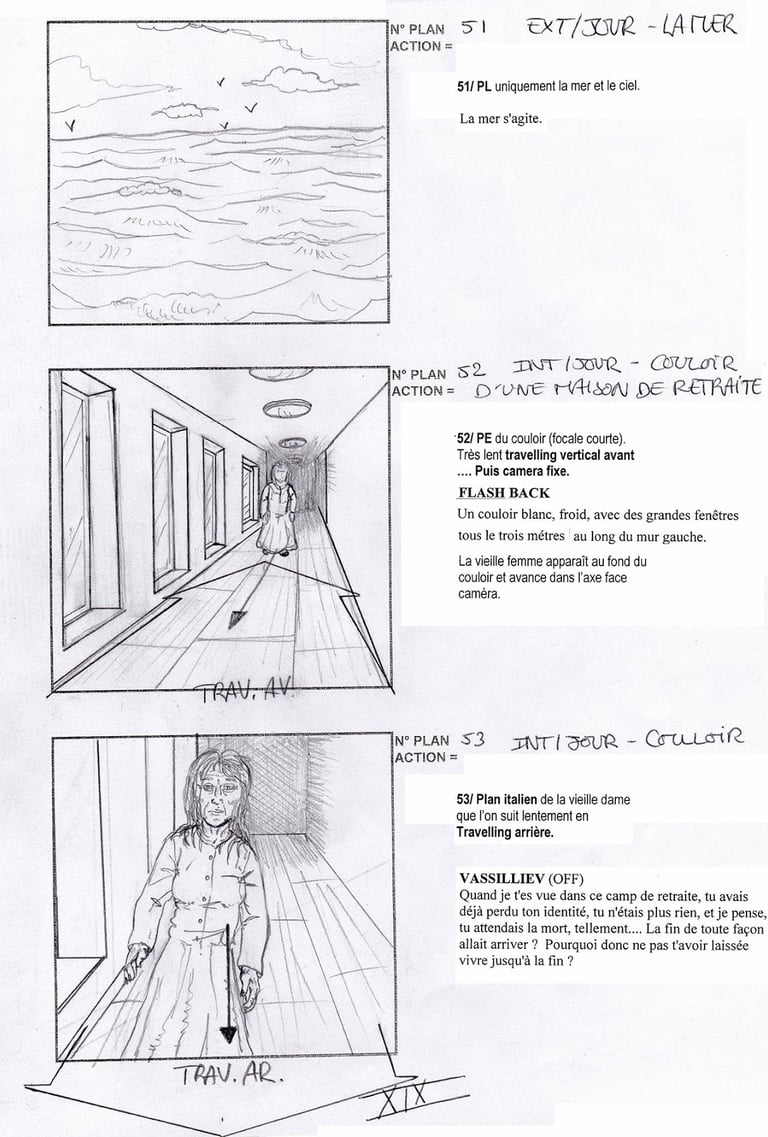 N° PLAN 51 EXT/JOUR - LA MER
ACTION =
51/ PL uniquement la mer et le ciel.
La mer s'agite.
N° PLAN 52 INT/JOUR - COULOIR
ACTION = D'UNE MAISON DE RETRAITE
52/ PE du couloir (focale courte).
Très lent travelling vertical avant
.... Puis camera fixe.
FLASH BACK
Un couloir blanc, froid, avec des grandes fenêtres
tous le trois métres au long du mur gauche.
La vieille femme apparaît au fond du
couloir et avance dans l'axe face
caméra.
TRAV. AV.
N° PLAN 53 INT/JOUR - COULOIR
ACTION =
53/ Plan italien de la vieille dame
que l'on suit lentement en
Travelling arrière.
VASSILLIEV (OFF)
Quand je t'es vue dans ce camp de retraite, tu avais
déjà perdu ton identité, tu n'étais plus rien, et je pense,
tu attendais la mort, tellement.... La fin de toute façon
allait arriver ? Pourquoi donc ne pas t'avoir laissée
vivre jusqu'à la fin ?
TRAV. AR.
XIX